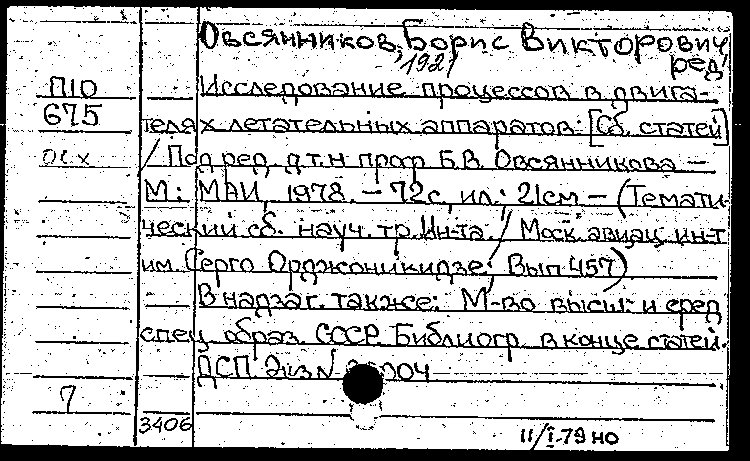 Овсянников, Борис Викторович,
1921
ред.
П10
Исследование процессов в двига-
675
телях летательных аппаратов: [Сб. статей]
осх
/ Под ред. д.т.н. проф. Б.В. Овсянникова. –
М.: МАИ, 1978. – 72 с., ил.; 21 см – (Темати-
ческий сб. науч. тр. Ин-та. / Моск. авиац. ин-т
им. Серго Орджоникидзе; Вып. 457)
В надзаг. также: М-во высш. и сред.
спец. образ. СССР. Библиогр. в конце статей.
ДСП Экз N 004
7
3406
11/I-79 но